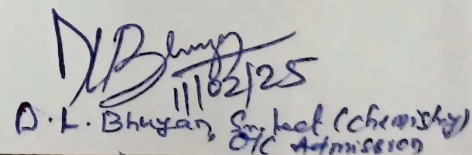 DLBhuyan
11/02/25
D. L. Bhuyan, Sr. Lect (Chemistry)
O/C Admission